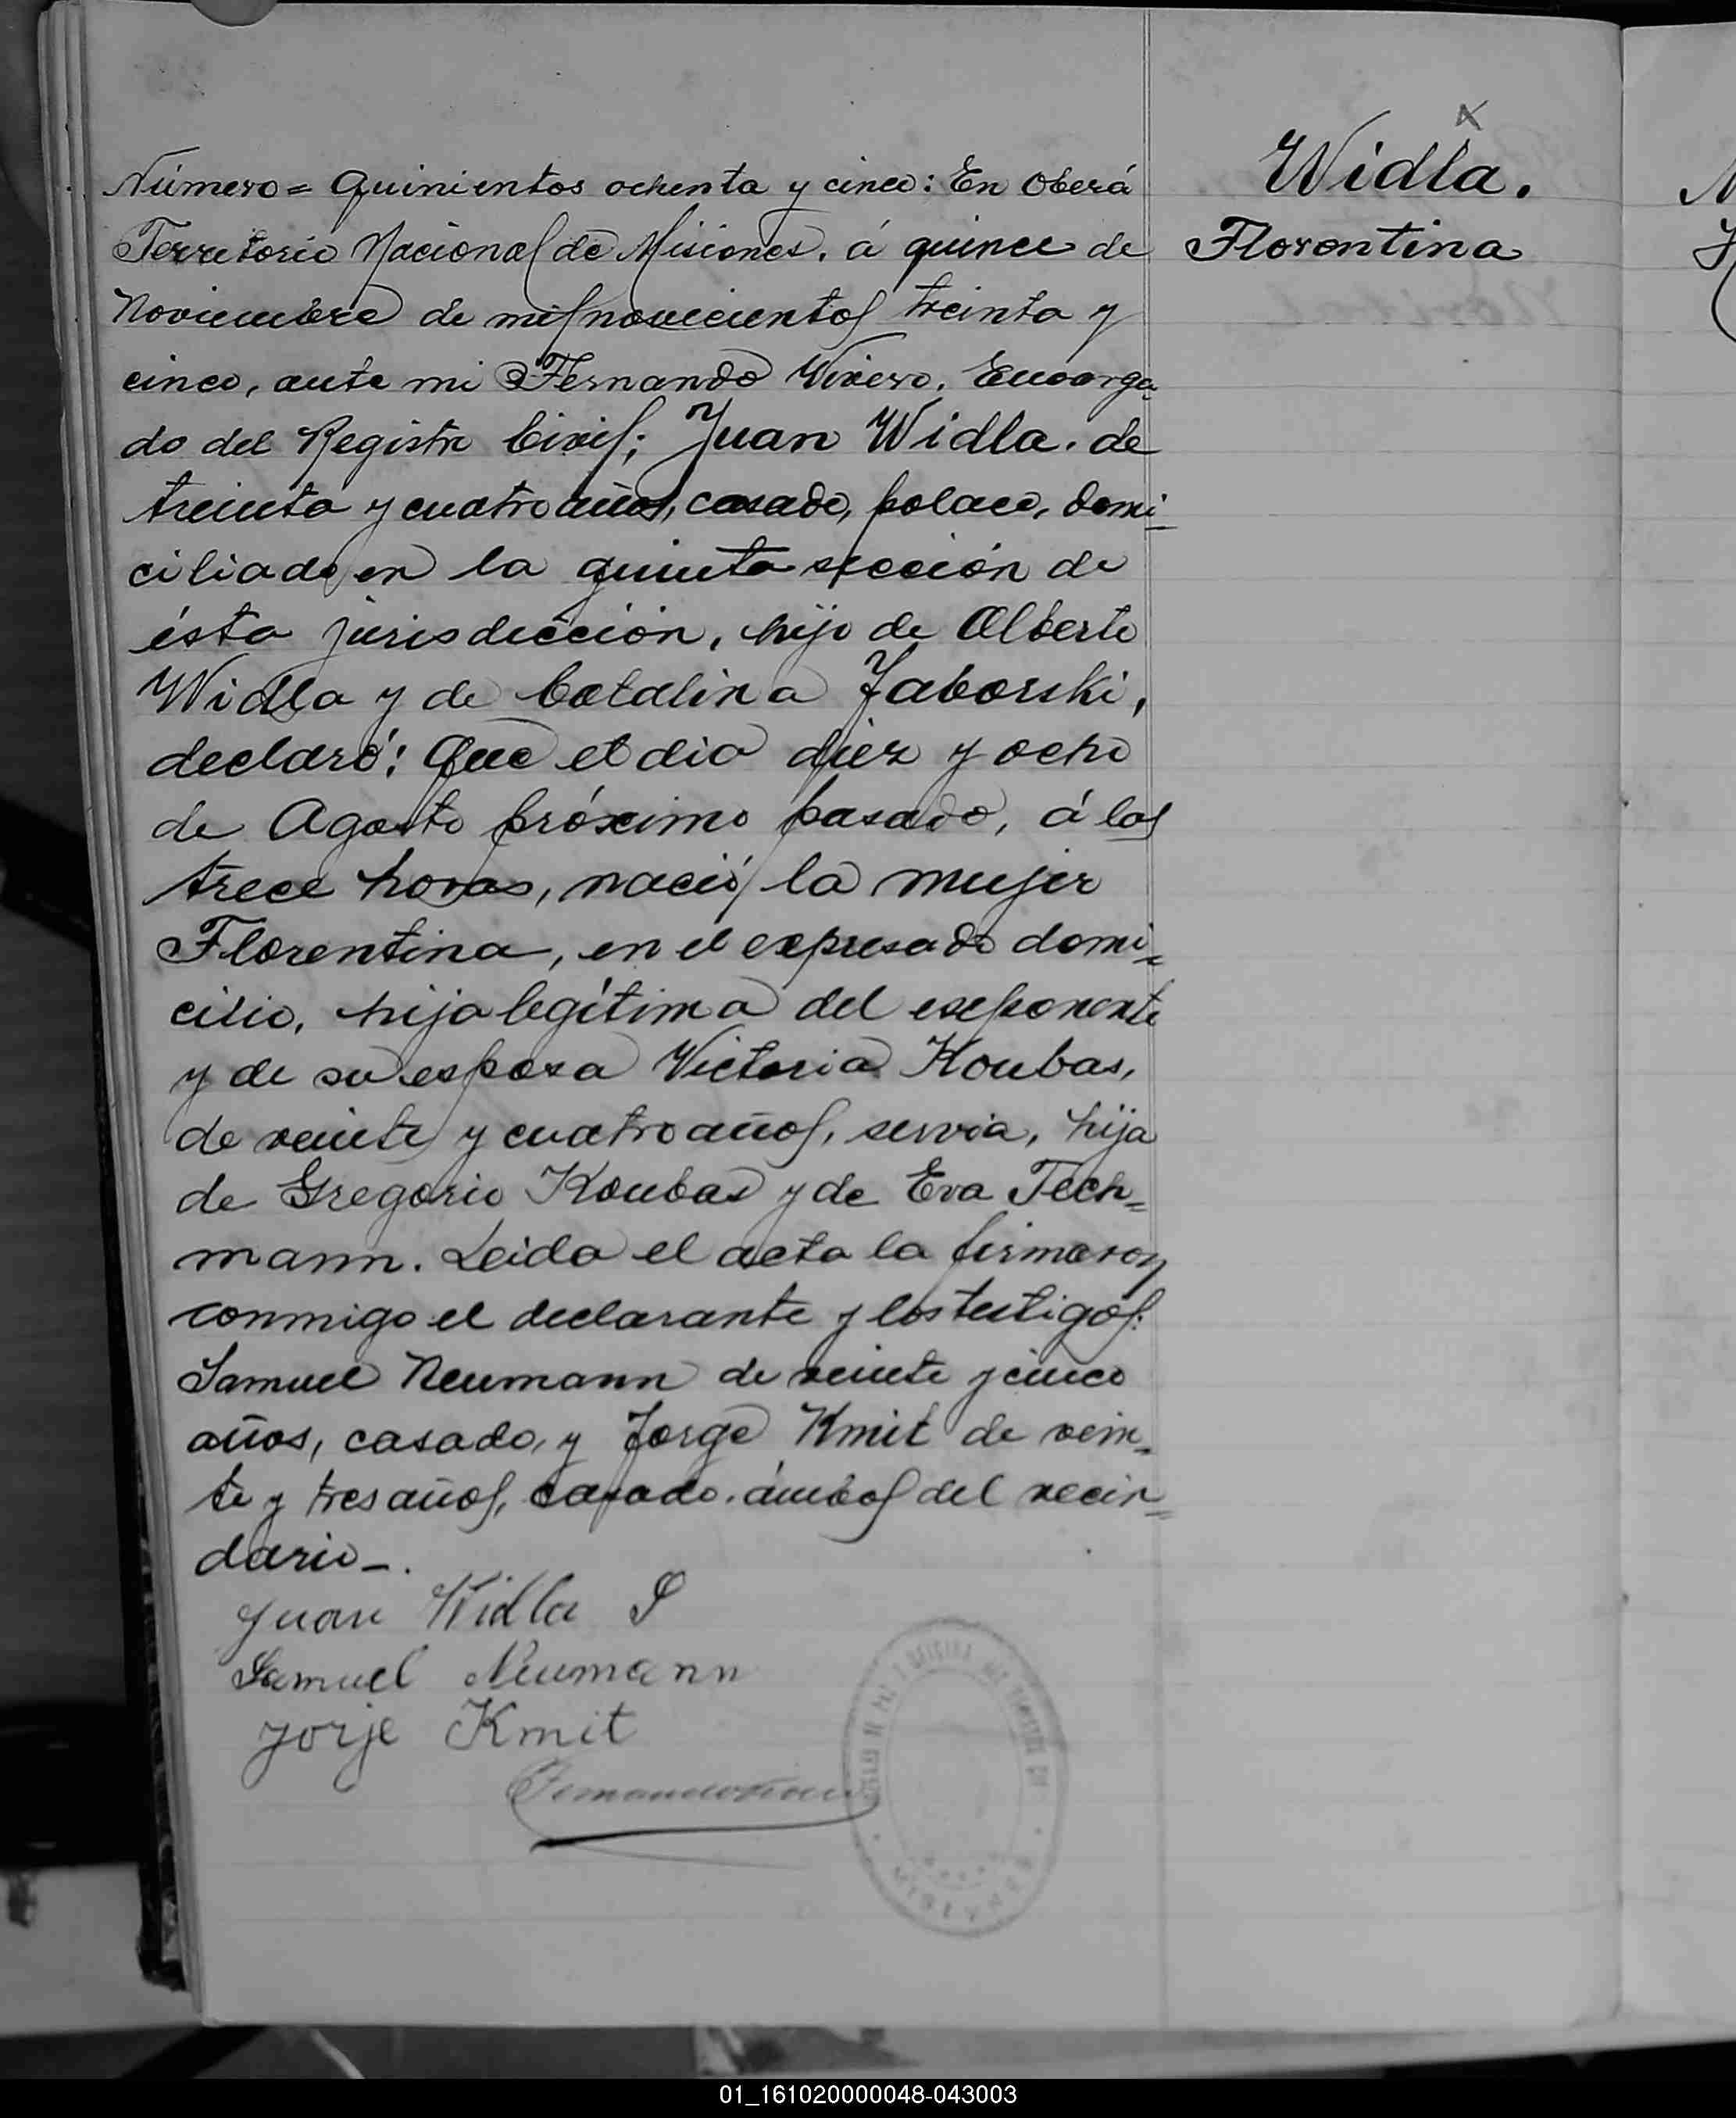 Número= Quinientos ochenta y cinco: En Oberá
Territorio Nacional de Misiones. á quince de
Noviembre de mil novecientos treinta y
cinco, ante mi Fernando Vivero, Encarga
do del Registro Civil; Juan Widla. de
treinta y cuatro años, casado, polaco, domi-
ciliado en la quinta sección de
ésta jurisdicción, hijo de Alberto
Widla y de Catalina Jaborski,
declaró: Que el dia diez y ocho
de Agosto próximo pasado, á las
trece horas, nació la mujer
Florentina, en el expresado domi=
cilio, hija legítima del exponente
y de su esposa Victoria Koubas,
de veinte y cuatro años, servia, hija
de Gregorio Koubas y de Eva Tech=
mann. Leida el acta la firmaron
conmigo el declarante y los testigos:
Samuel Neumann de veinte y cinco
años, casado, y Jorge Kmit de vein=
te y tres años, casado. ámbos del vecin=
dario-.
Juan Widla S
Samuel Neumann
Jorje Kmit
Widla.
Florentina
MISIONES
01_161020000048-043003